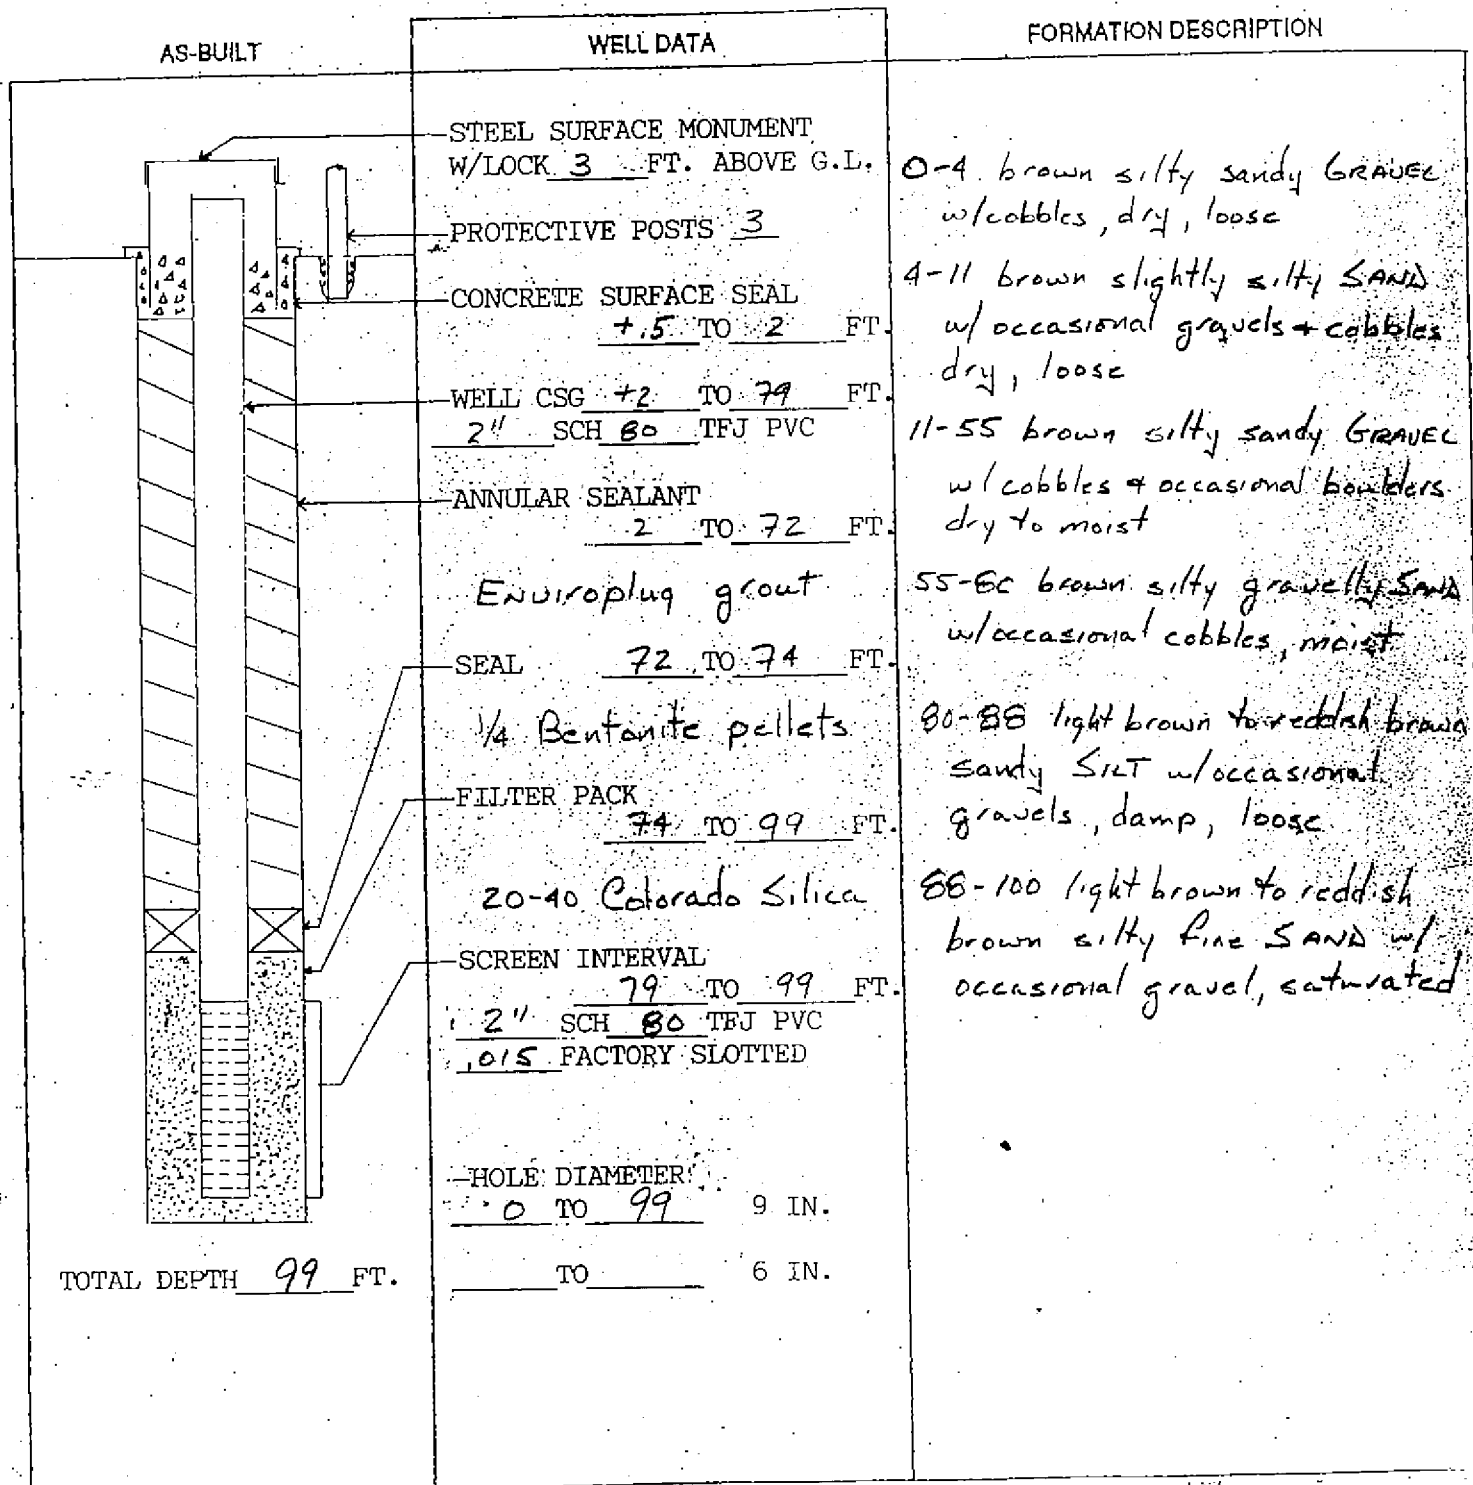 AS-BUILT
WELL DATA
FORMATION DESCRIPTION
STEEL SURFACE MONUMENT
W/LOCK 3 FT. ABOVE G.L.
PROTECTIVE POSTS 3
CONCRETE SURFACE SEAL
+.5 TO 2 FT.
WELL CSG +2 TO 79 FT.
2" SCH 80 TFJ PVC
ANNULAR SEALANT
2 TO 72 FT.
Enviroplug grout
SEAL 72 TO 74 FT.
1/4 Bentonite pellets
FILTER PACK
74 TO 99 FT.
20-40 Colorado Silica
SCREEN INTERVAL
79 TO 99 FT.
2" SCH 80 TFJ PVC
.015 FACTORY SLOTTED
HOLE DIAMETER
0 TO 99 9 IN.
TO 6 IN.
TOTAL DEPTH 99 FT.
0-4 brown silty sandy GRAVEL
w/cobbles, dry, loose
4-11 brown slightly silty SAND
w/ occasional gravels + cobbles
dry, loose
11-55 brown silty sandy GRAVEL
w/ cobbles + occasional boulders
dry to moist
55-80 brown silty gravelly SAND
w/occasional cobbles, moist
80-88 light brown to reddish brown
sandy SILT w/occasional
gravels, damp, loose
88-100 light brown to reddish
brown silty fine SAND w/
occasional gravel, saturated